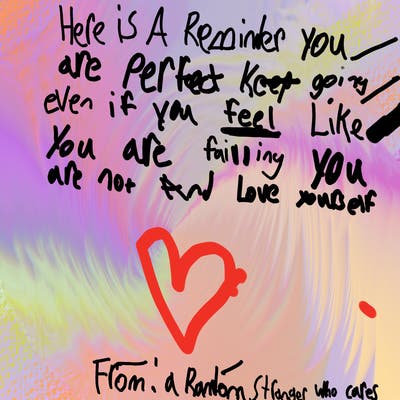 Here is A Reminder You
are Perfect Keep going
even if you feel Like
You are failling you
are not And Love yourself
From: a Random Stranger who cares